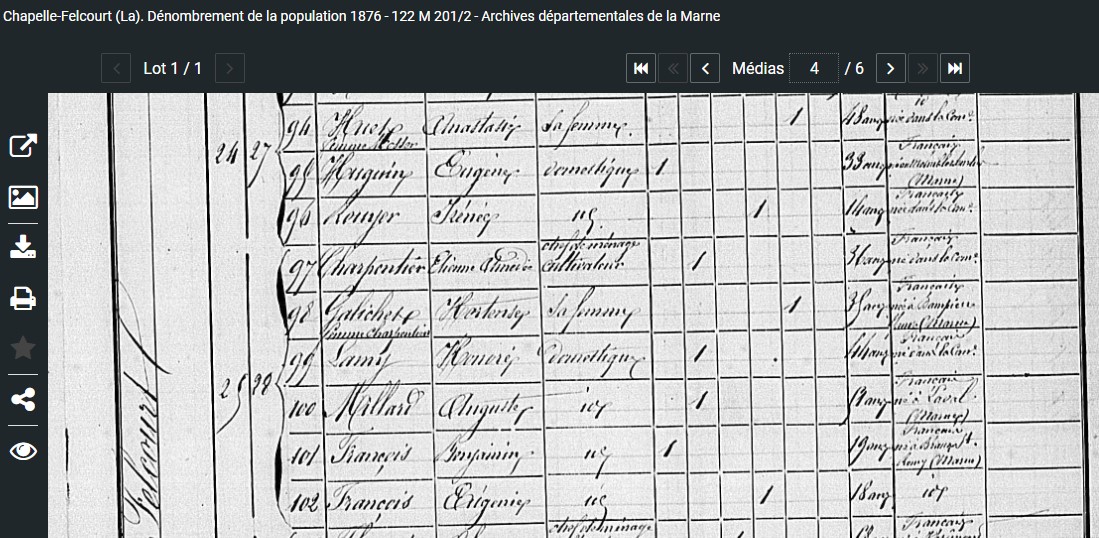 Chapelle-Felcourt (La). Dénombrement de la population 1876 - 122 M 201/2 - Archives départementales de la Marne
Lot 1 / 1
Médias 4 / 6
Felcourt
24 27
94 Huet Anastasie Sa femme 1 48 ans née dans la Com.
femme
Français
95 Eugène domestique 1 33 ans
(Marne)
Français
96 Irénée id 1 14 ans née dans la Com.
chef de ménage Français
97 Charpentier Etienne cultivateur 1 36 ans né dans la Com.
Française
98 Galichet Hortense Sa femme 1 née à Dampierre
femme Charpentier (Marne)
Français
25 28
99 Lamy Honoré domestique 1 44 ans né dans la Com.
Français
100 Millard Auguste id 1 né à
(Marne)
Français
101 François Benjamin id 1 19 ans né à
Remy (Marne)
102 François Eugénie id 1 18 ans id
chef de ménage Français